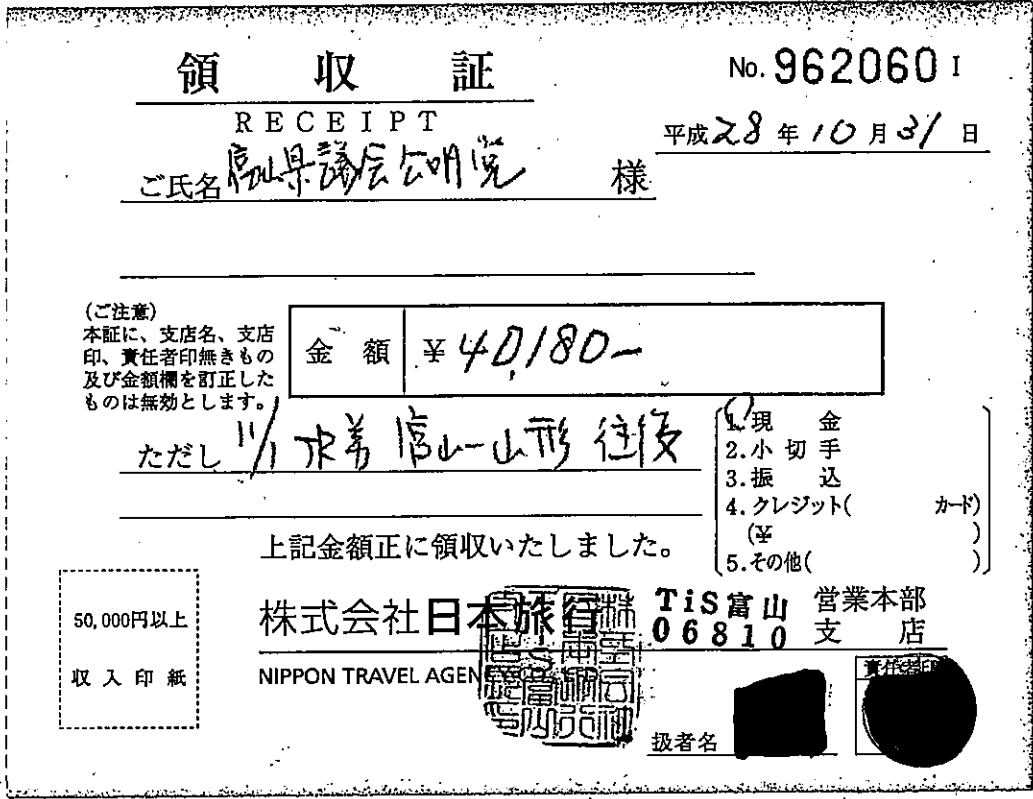 領収証
No. 962060 I
RECEIPT
平成28年10月31日
ご氏名 富山県議会公明党 様
(ご注意)
本証に、支店名、支店
印、責任者印無きもの
及び金額欄を訂正した
ものは無効とします。
金額 ¥40,180-
ただし 11/1 JR券 富山-山形 往復
1.現金
2.小切手
3.振込
4.クレジット( カード)
(¥ )
5.その他( )
上記金額正に領収いたしました。
50,000円以上
収入印紙
株式会社日本旅行
TiS富山 営業本部
06810 支店
NIPPON TRAVEL AGENCY CO., LTD.
扱者名
責任者印